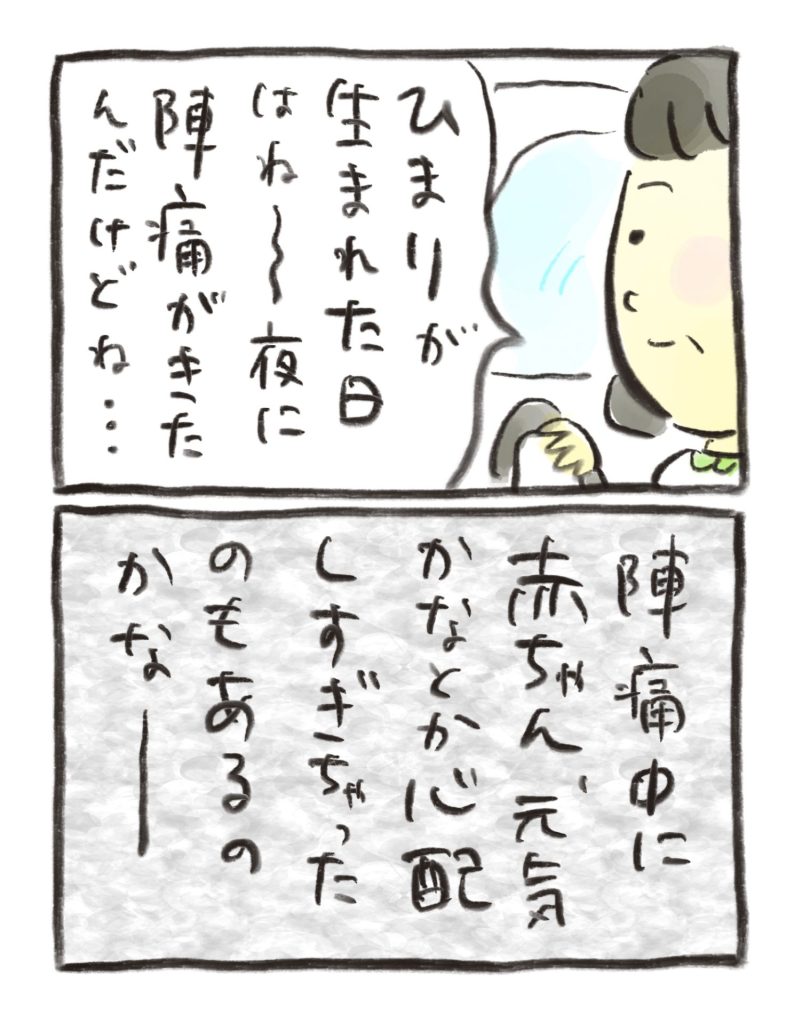 ひまりが
生まれた日
はね〜〜夜に
陣痛がきた
んだけどね…
陣痛中に
赤ちゃん、元気
かなとか心配
しすぎちゃった
のもあるの
かなー